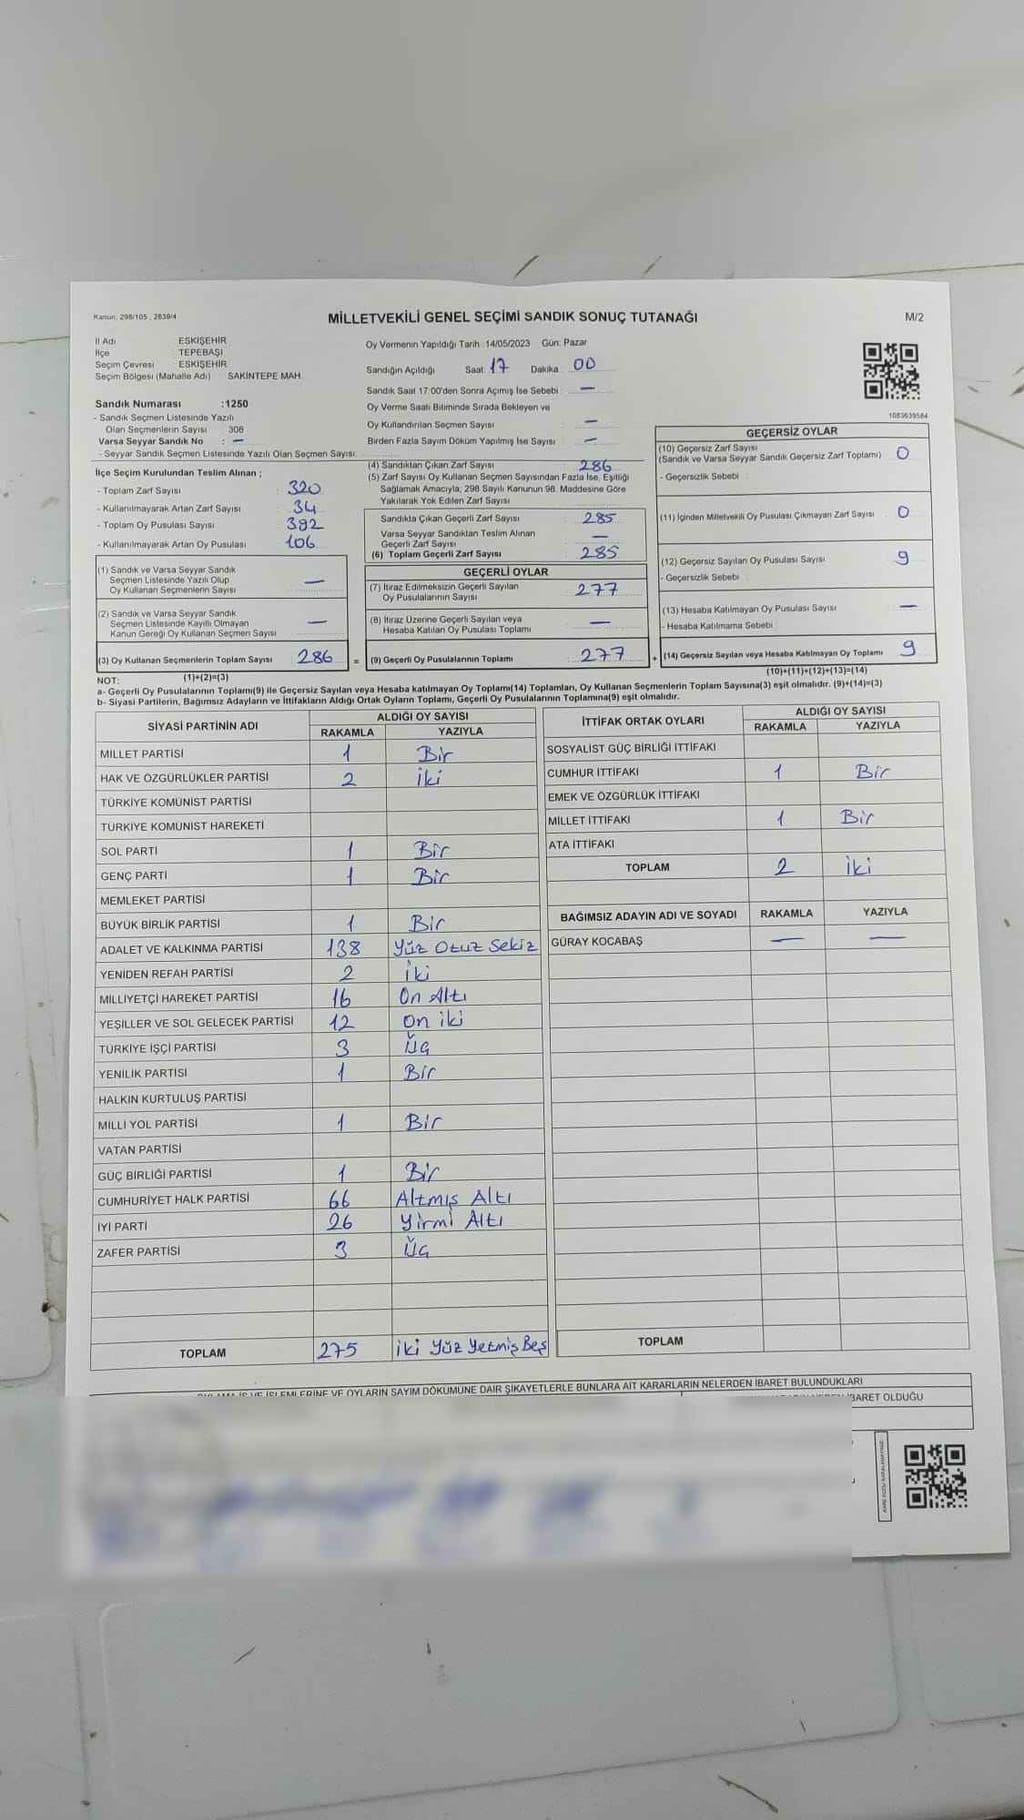 Kanun: 298/105 , 2839/4
MİLLETVEKİLİ GENEL SEÇİMİ SANDIK SONUÇ TUTANAĞI
M/2
İl Adı ESKİŞEHİR
İlçe TEPEBAŞI
Seçim Çevresi ESKİŞEHİR
Seçim Bölgesi (Mahalle Adı) SAKİNTEPE MAH.
Oy Vermenin Yapıldığı Tarih :14/05/2023 Gün: Pazar
Sandığın Açıldığı Saat: 17 Dakika: 00
Sandık Saat 17:00'den Sonra Açılmış İse Sebebi : —
Oy Verme Saati Bitiminde Sırada Bekleyen ve
Oy Kullandırılan Seçmen Sayısı —
Birden Fazla Sayım Döküm Yapılmış İse Sayısı —
1083639584
Sandık Numarası :1250
- Sandık Seçmen Listesinde Yazılı
Olan Seçmenlerin Sayısı 308
Varsa Seyyar Sandık No : —
- Seyyar Sandık Seçmen Listesinde Yazılı Olan Seçmen Sayısı:
İlçe Seçim Kurulundan Teslim Alınan ;
- Toplam Zarf Sayısı 320
- Kullanılmayarak Artan Zarf Sayısı 34
- Toplam Oy Pusulası Sayısı 392
- Kullanılmayarak Artan Oy Pusulası 106
(1) Sandık ve Varsa Seyyar Sandık
Seçmen Listesinde Yazılı Olup
Oy Kullanan Seçmenlerin Sayısı —
(2) Sandık ve Varsa Seyyar Sandık
Seçmen Listesinde Kayıtlı Olmayan
Kanun Gereği Oy Kullanan Seçmen Sayısı —
(3) Oy Kullanan Seçmenlerin Toplam Sayısı 286 =
(1)+(2)=(3)
(4) Sandıktan Çıkan Zarf Sayısı 286
(5) Zarf Sayısı Oy Kullanan Seçmen Sayısından Fazla İse, Eşitliği
Sağlamak Amacıyla, 298 Sayılı Kanunun 98. Maddesine Göre
Yakılarak Yok Edilen Zarf Sayısı
Sandıkta Çıkan Geçerli Zarf Sayısı 285
Varsa Seyyar Sandıktan Teslim Alınan
Geçerli Zarf Sayısı —
(6) Toplam Geçerli Zarf Sayısı 285
GEÇERLİ OYLAR
(7) İtiraz Edilmeksizin Geçerli Sayılan
Oy Pusulalarının Sayısı 277
(8) İtiraz Üzerine Geçerli Sayılan veya
Hesaba Katılan Oy Pusulası Toplamı —
(9) Geçerli Oy Pusulalarının Toplamı 277 +
GEÇERSİZ OYLAR
(10) Geçersiz Zarf Sayısı
(Sandık ve Varsa Seyyar Sandık Geçersiz Zarf Toplamı) 0
- Geçersizlik Sebebi :
(11) İçinden Milletvekili Oy Pusulası Çıkmayan Zarf Sayısı 0
(12) Geçersiz Sayılan Oy Pusulası Sayısı 9
- Geçersizlik Sebebi :
(13) Hesaba Katılmayan Oy Pusulası Sayısı —
- Hesaba Katılmama Sebebi :
(14) Geçersiz Sayılan veya Hesaba Katılmayan Oy Toplamı 9
(10)+(11)+(12)+(13)=(14)
NOT:
a- Geçerli Oy Pusulalarının Toplamı(9) ile Geçersiz Sayılan veya Hesaba katılmayan Oy Toplamı(14) Toplamları, Oy Kullanan Seçmenlerin Toplam Sayısına(3) eşit olmalıdır. (9)+(14)=(3)
b- Siyasi Partilerin, Bağımsız Adayların ve İttifakların Aldığı Ortak Oyların Toplamı, Geçerli Oy Pusulalarının Toplamına(9) eşit olmalıdır.
SİYASİ PARTİNİN ADI ALDIĞI OY SAYISI
RAKAMLA YAZIYLA
MİLLET PARTİSİ 1 Bir
HAK VE ÖZGÜRLÜKLER PARTİSİ 2 iki
TÜRKİYE KOMÜNİST PARTİSİ
TÜRKİYE KOMÜNİST HAREKETİ
SOL PARTİ 1 Bir
GENÇ PARTİ 1 Bir
MEMLEKET PARTİSİ
BÜYÜK BİRLİK PARTİSİ 1 Bir
ADALET VE KALKINMA PARTİSİ 138 Yüz Otuz Sekiz
YENİDEN REFAH PARTİSİ 2 iki
MİLLİYETÇİ HAREKET PARTİSİ 16 On Altı
YEŞİLLER VE SOL GELECEK PARTİSİ 12 On iki
TÜRKİYE İŞÇİ PARTİSİ 3 Üç
YENİLİK PARTİSİ 1 Bir
HALKIN KURTULUŞ PARTİSİ
MİLLİ YOL PARTİSİ 1 Bir
VATAN PARTİSİ
GÜÇ BİRLİĞİ PARTİSİ 1 Bir
CUMHURİYET HALK PARTİSİ 66 Altmış Altı
İYİ PARTİ 26 Yirmi Altı
ZAFER PARTİSİ 3 Üç
TOPLAM 275 iki Yüz Yetmiş Beş
İTTİFAK ORTAK OYLARI ALDIĞI OY SAYISI
RAKAMLA YAZIYLA
SOSYALİST GÜÇ BİRLİĞİ İTTİFAKI
CUMHUR İTTİFAKI 1 Bir
EMEK VE ÖZGÜRLÜK İTTİFAKI
MİLLET İTTİFAKI 1 Bir
ATA İTTİFAKI
TOPLAM 2 iki
BAĞIMSIZ ADAYIN ADI VE SOYADI RAKAMLA YAZIYLA
GÜRAY KOCABAŞ — —
TOPLAM
İŞLEMLERİNE VE OYLARIN SAYIM DÖKÜMÜNE DAİR ŞİKAYETLERLE BUNLARA AİT KARARLARIN NELERDEN İBARET BULUNDUKLARI
İBARET OLDUĞU